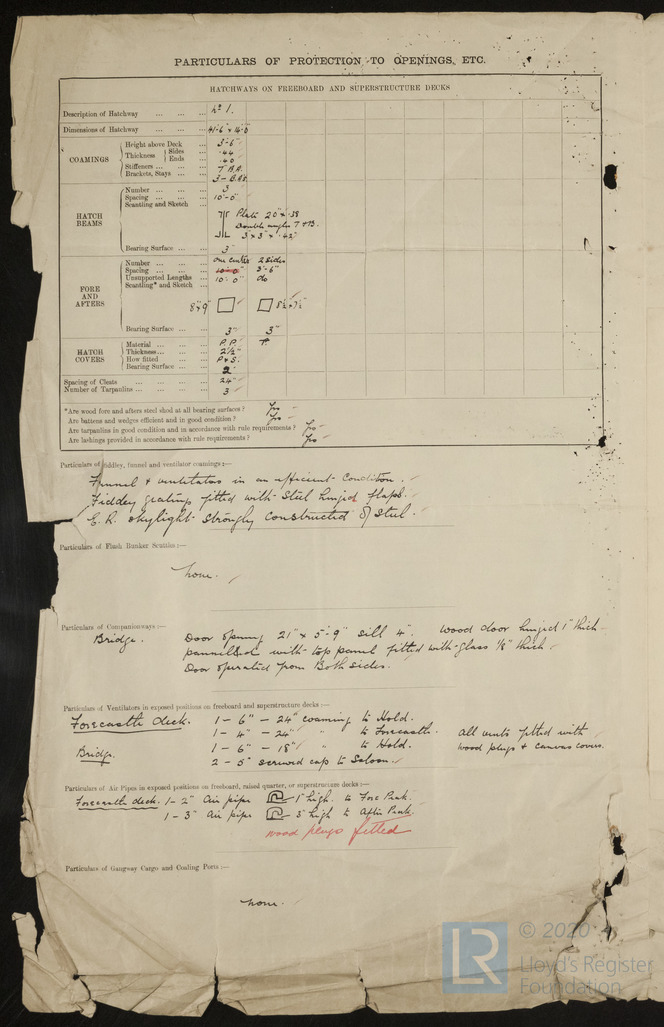 PARTICULARS OF PROTECTION TO OPENINGS, ETC.
HATCHWAYS ON FREEBOARD AND SUPERSTRUCTURE DECKS
Description of Hatchway ... ... ... No 1.
Dimensions of Hatchway ... ... ... 41'-6" x 16'-0
COAMINGS
Height above Deck ... 3'-6"
Thickness { Sides ... .44
Ends ... .40
Stiffeners ... ... ... 7" B.A.
Brackets, Stays ... ... 3 –
HATCH BEAMS
Number ... ... ... 3
Spacing ... ... ... 10'-0"
Scantling and Sketch ...
Plate 20" x .38
Double angles T & B.
3" x 3" x .42"
Bearing Surface ... ... 3"
FORE AND AFTERS
Number ... ... ... one center 2 sides
Spacing ... ... ... 10'-0" 3'-6"
Unsupported Lengths ... 10'-0" do
Scantling* and Sketch ...
8" x 9"
Bearing Surface ... ... 3" 3"
HATCH COVERS
Material ... ... ... P.P. P.
Thickness ... ... ... 2½"
How fitted ... ... ... P & S.
Bearing Surface ... ... 2
Spacing of Cleats ... ... ... ... 24"
Number of Tarpaulins ... ... ... ... 3
*Are wood fore and afters steel shod at all bearing surfaces? Yes
Are battens and wedges efficient and in good condition? Yes
Are tarpaulins in good condition and in accordance with rule requirements? Yes
Are lashings provided in accordance with rule requirements? Yes
Particulars of fiddley, funnel and ventilator coamings:—
Funnel & ventilators in an efficient condition.
Fiddley gratings fitted with steel hinged flaps.
E. R. skylight strongly constructed of steel.
Particulars of Flush Bunker Scuttles:—
None.
Particulars of Companionways:—
Bridge. Door opening 21" x 5'-9" sill 4". Wood door hinged 1" thick
with top panel fitted with glass 1/8" thick.
Door operated from both sides.
Particulars of Ventilators in exposed positions on freeboard and superstructure decks:—
Forecastle deck. 1 – 6" – 24" coaming to Hold.
1 – 4" – 24" " to Forecastle. All vents fitted with
Bridge. 1 – 6" – 18" " to Hold. wood plugs & canvas covers.
2 – 5" screwed cap to Saloon.
Particulars of Air Pipes in exposed positions on freeboard, raised quarter, or superstructure decks:—
Forecastle deck. 1 – 2" Air pipe 1" high. to Fore Peak.
1 – 3" Air pipe 3" high to After Peak.
Wood plugs fitted
Particulars of Gangway Cargo and Coaling Ports:—
None.
LR © 2020
Lloyd's Register
Foundation